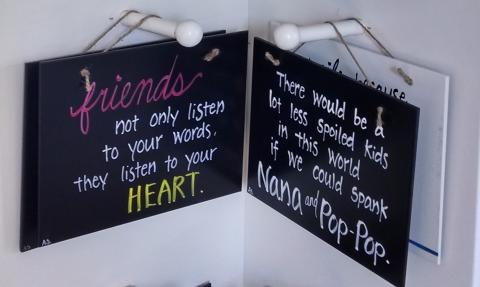 friends
not only listen
to your words,
they listen to your
HEART.
AS
There would be a
lot less spoiled kids
in this world
if we could spank
Nana and Pop-Pop.
because